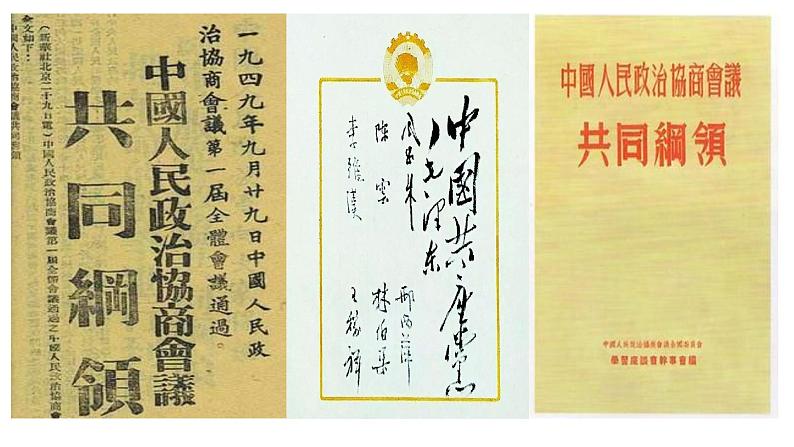 一九四九年九月廿九日中國人民政
治協商會議第一屆全體會議通過。
中國人民政治協商會議
共同綱領
(新華社北京二十九日電)中國人民政治協商會議第一屆全體會議通過之中國人民政治協商會
全文如下:
中國人民政治協商會議共同綱領
中国共产党
毛泽东
周恩来
林伯渠
陳雲
王稼祥
李維漢
中國人民政治協商會議
共同綱領
中國人民政治協商會議全國委員會
學習座談會幹事會編